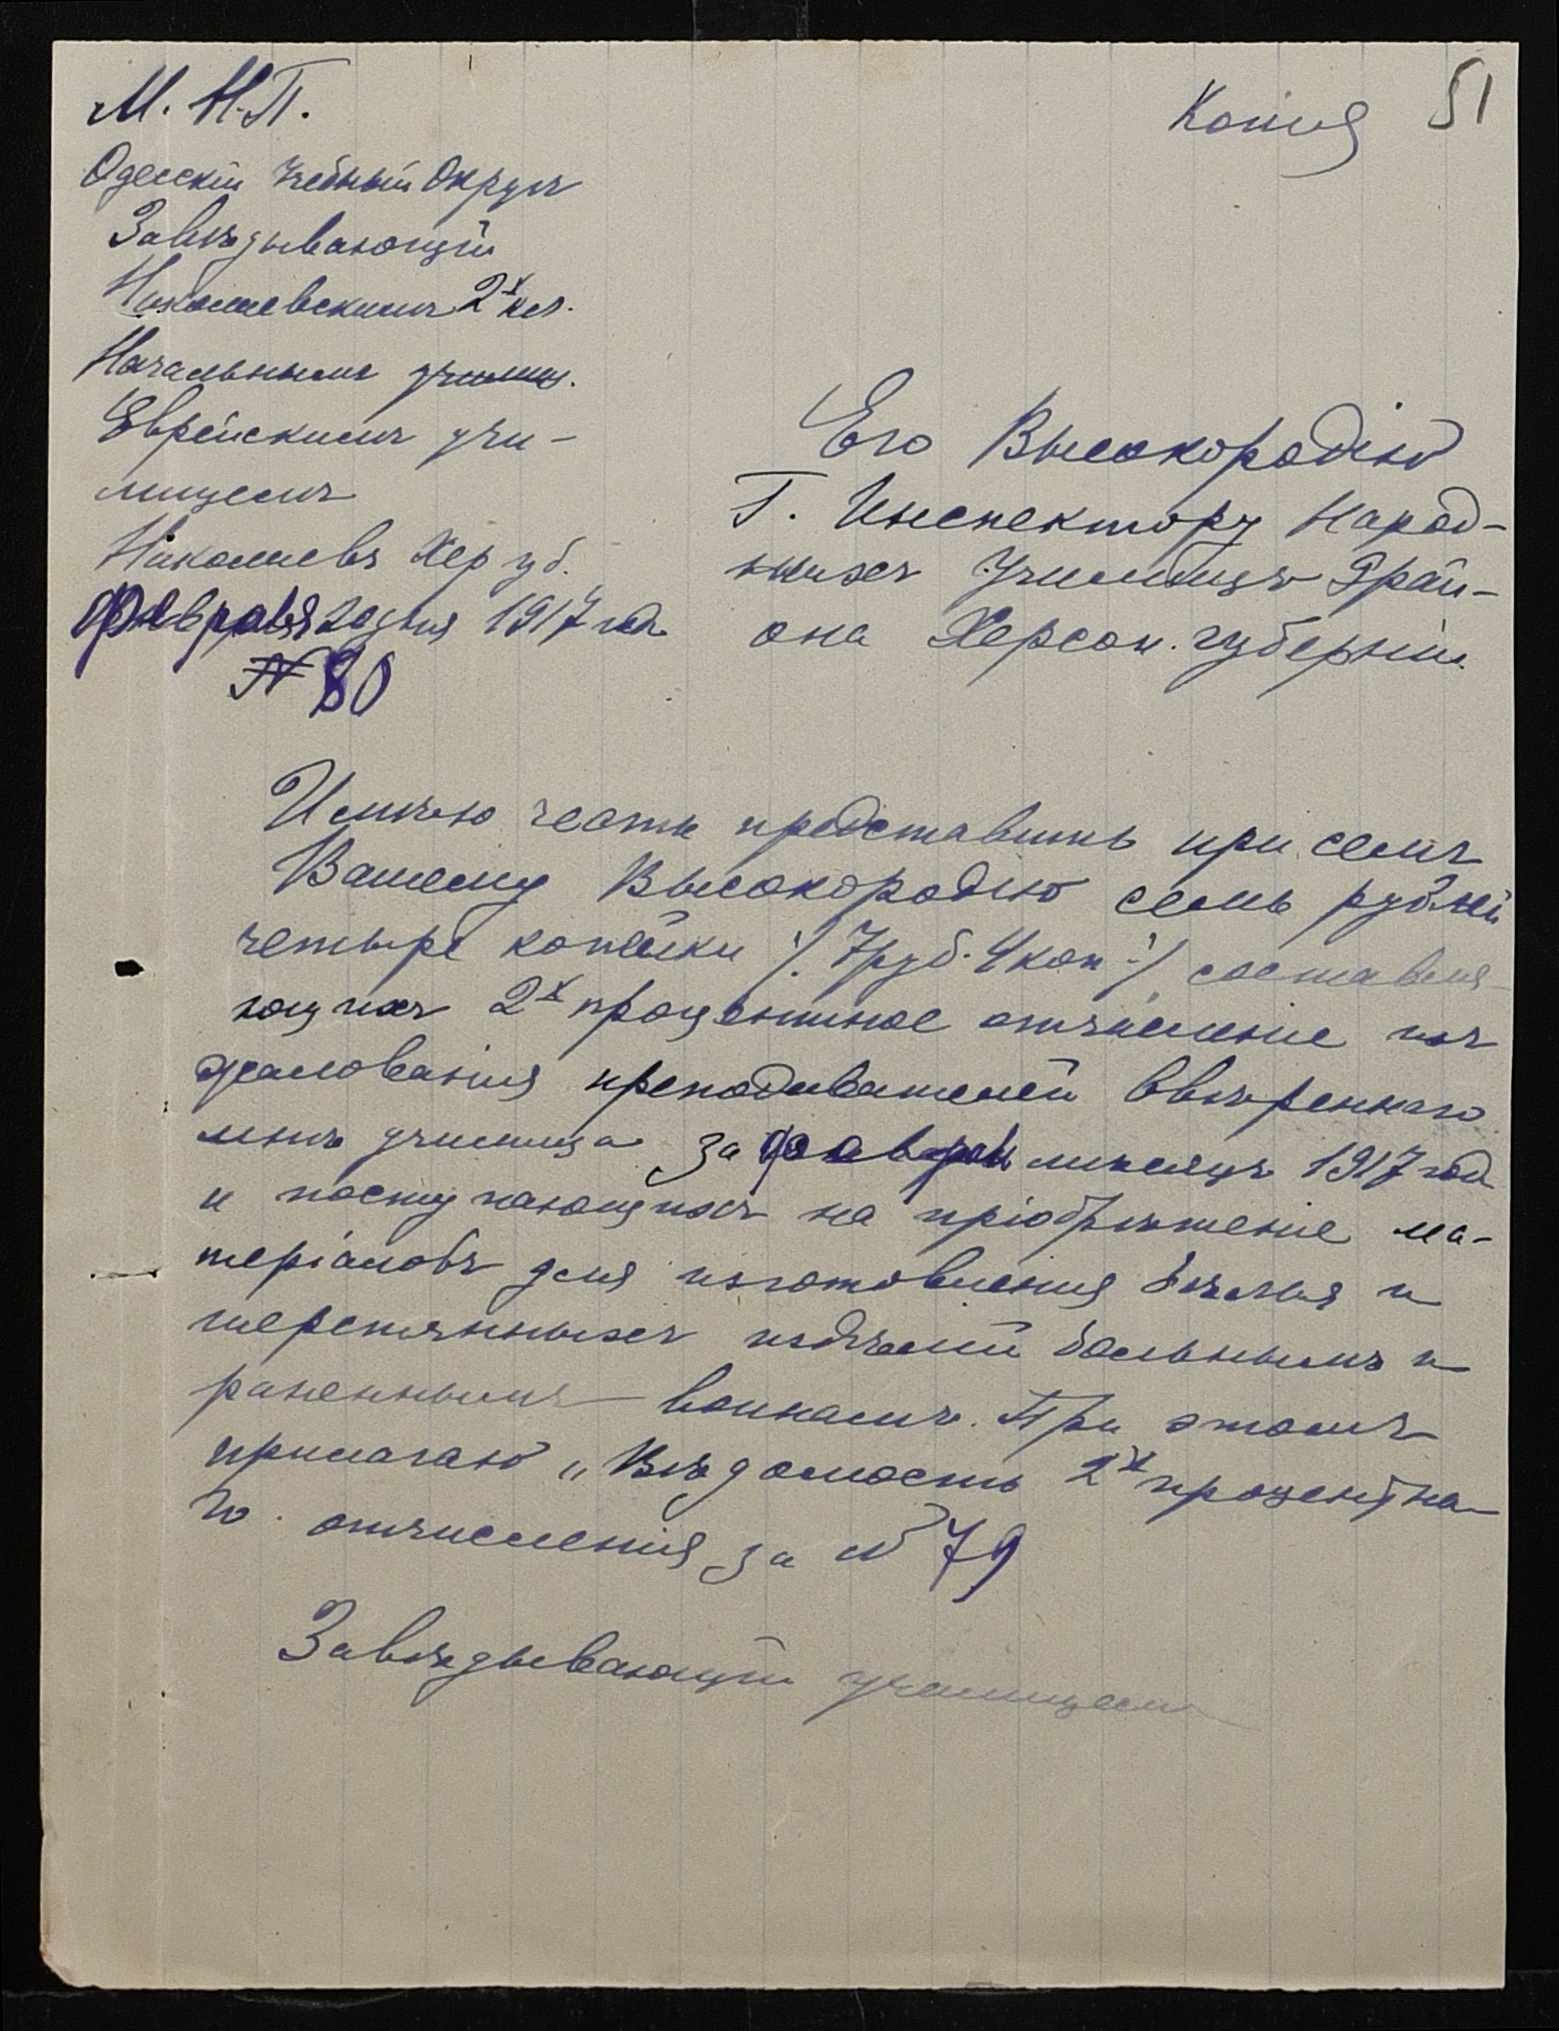 М. Н. П.
Одесскій Учебный Округъ
Завѣдывающій
Николаевскимъ 2х кл.
Начальнымъ училищ.
Еврейскимъ учи-
лищемъ
Николаевъ Хер губ.
Февраля 20 дня 1917 года
№ 80
Копія
51
Его Высокородію
Г. Инспектору Народ-
ныхъ Училищъ рай-
она Херсон. губерніи
Имѣю честь представить при семъ
Вашему Высокородію семь рублей
четыре копѣйки /. 7 руб. 4 коп ./ составля-
ющихъ 2х процентное отчисленіе изъ
жалованія преподавателей ввѣреннаго
мнѣ училища за феврал мѣсяцъ 1917 года
и поступающихъ на пріобрѣтеніе ма-
теріаловъ для изготовленія бѣлья и
шерстянныхъ издѣлій больнымъ и
раненнымъ воинамъ. При этомъ
прилагаю „Вѣдомость 2х процентна-
го отчисленія за № 79
Завѣдывающій училищемъ